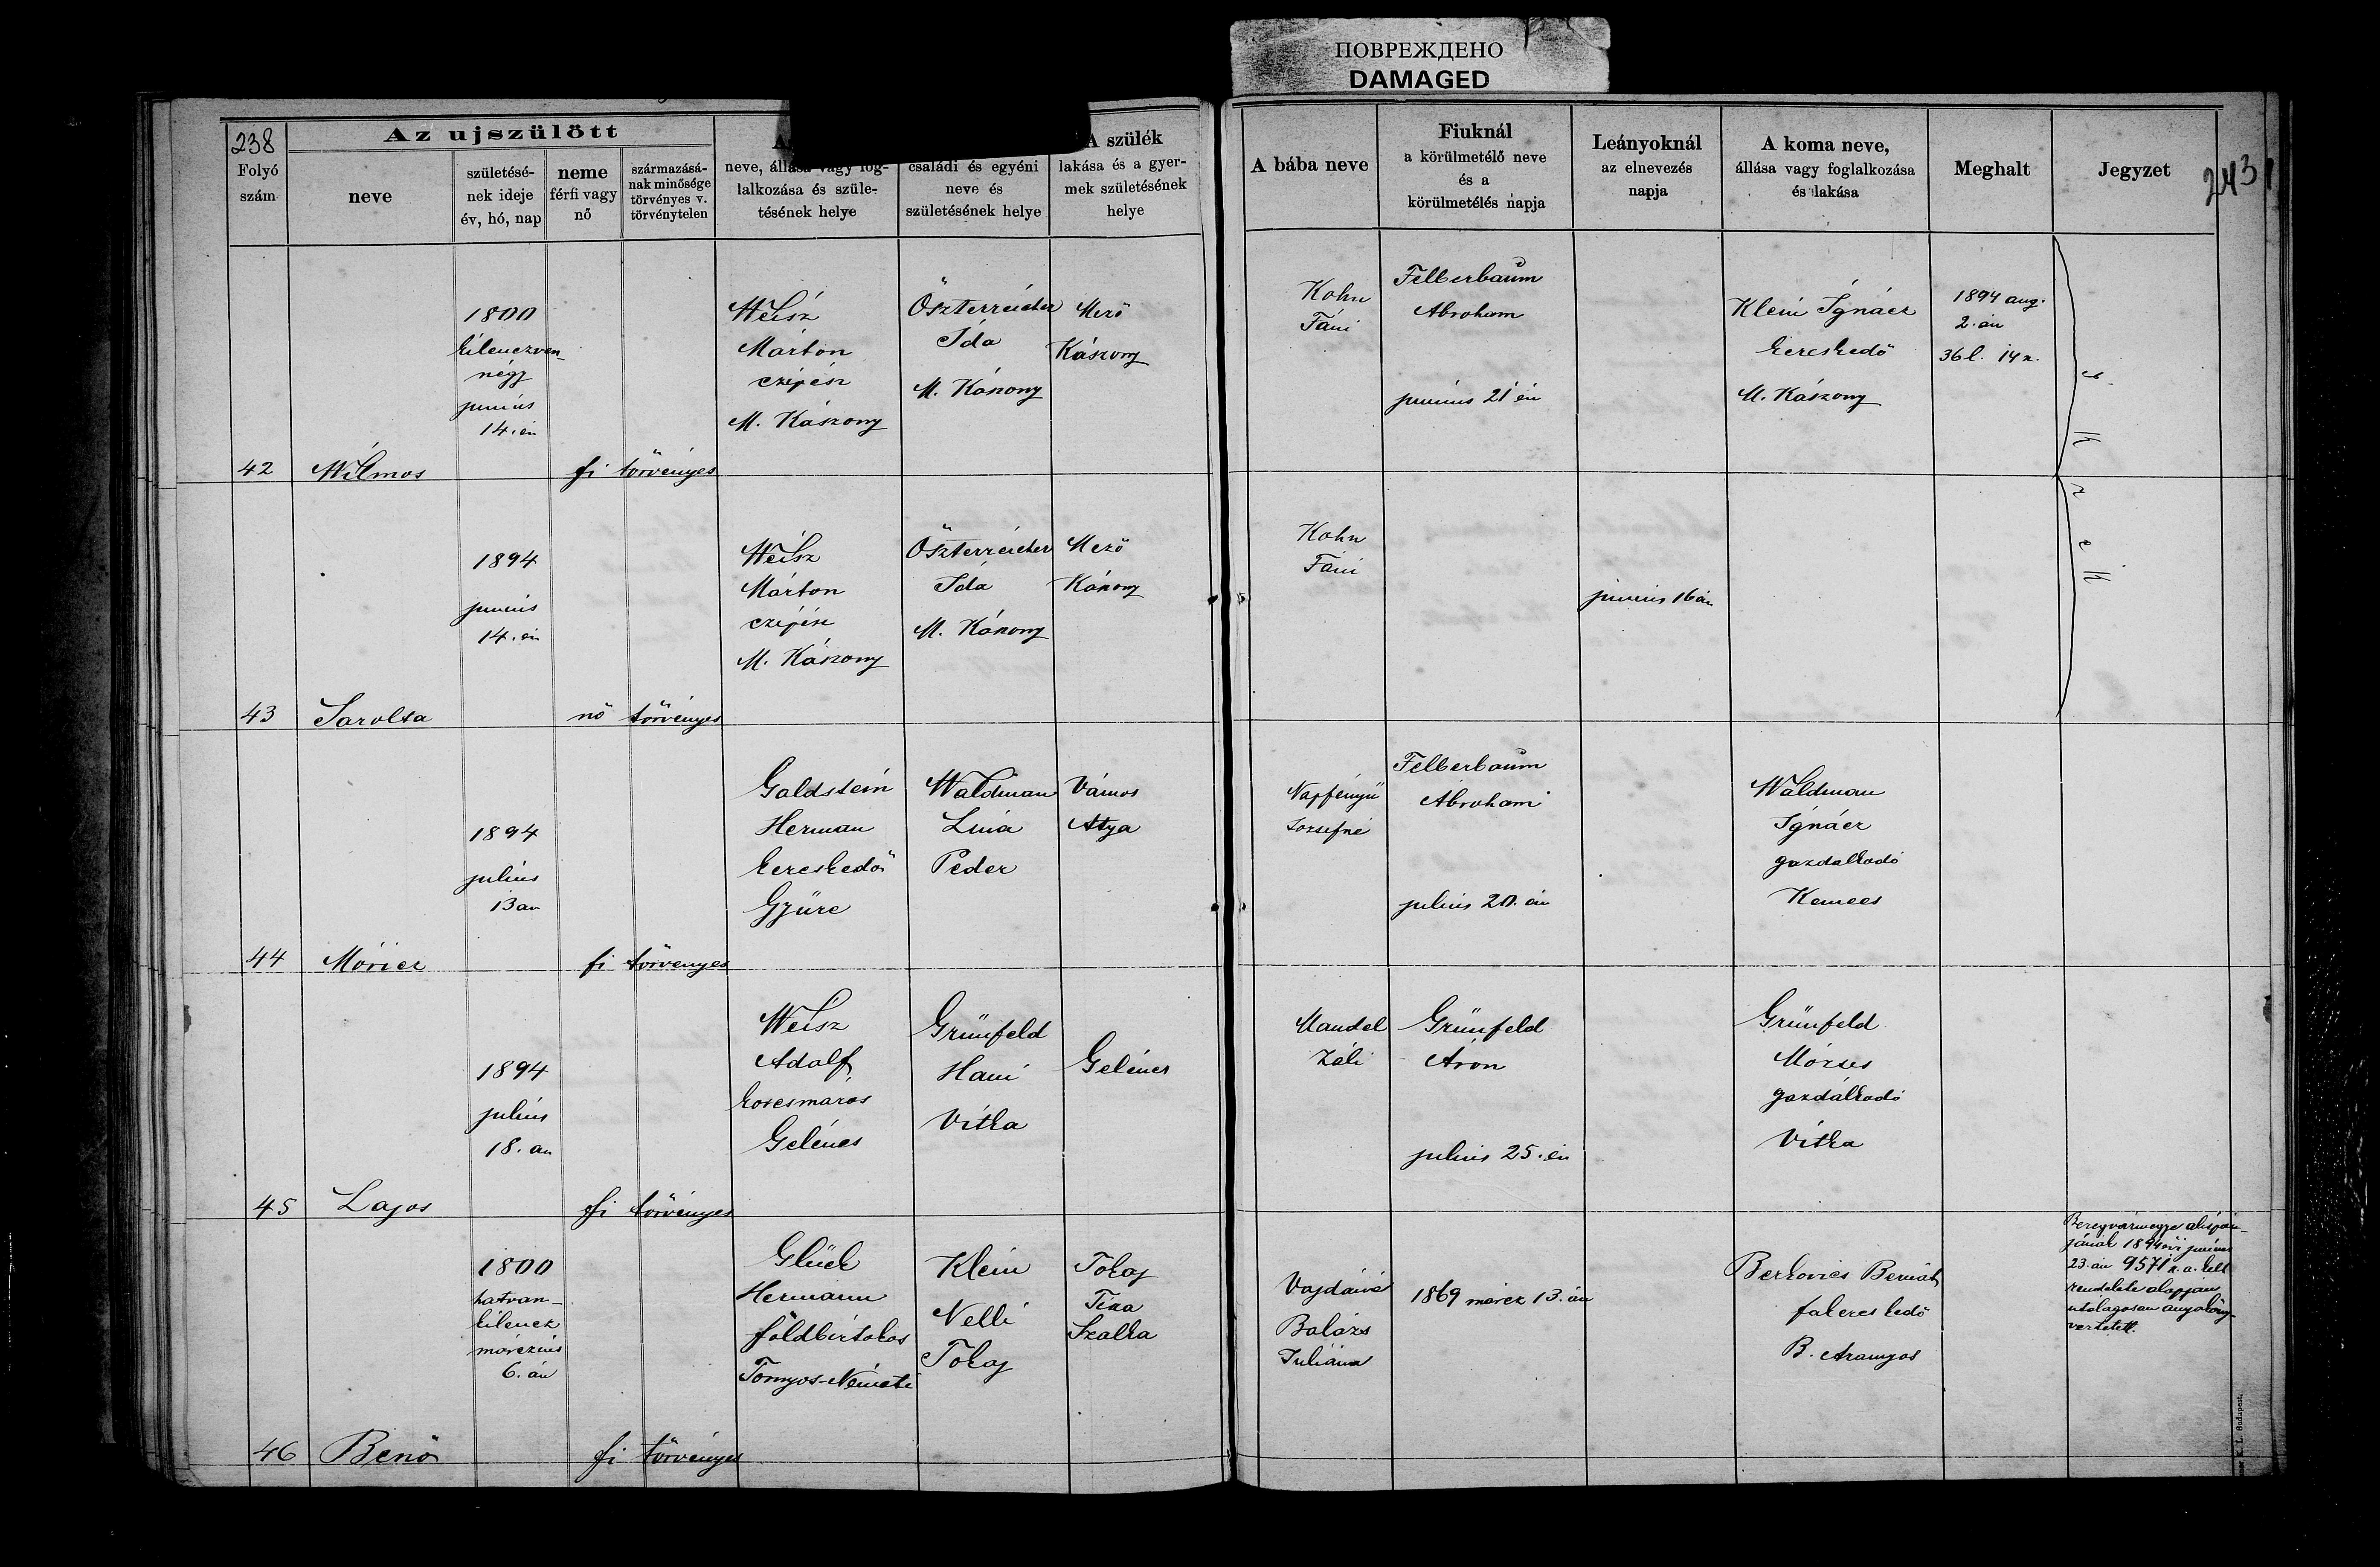 ПОВРЕЖДЕНО
DAMAGED
238
Az ujszülött
A szülék
Folyó
szám
neve
születésé-
nek ideje
év, hó, nap
neme
férfi vagy
nő
származásá-
nak minősége
törvényes v.
törvénytelen
neve, állása vagy fog-
lalkozása és szüle-
tésének helye
családi és egyéni
neve és
születésének helye
lakása és a gyer-
mek születésének
helye
A bába neve
Fiuknál
a körülmetélő neve
és a
körülmetélés napja
Leányoknál
az elnevezés
napja
A koma neve,
állása vagy foglalkozása
és lakása
Meghalt
Jegyzet
243
42
Wilmos
1800
kilenczven-
négy
junius
14.én
fi
törvényes
Weisz
Márton
czipész
M. Kászony
Öszterreicher
Ida
M. Kászony
Mező
Kászony
Kohn
Fáni
Felberbaum
Abraham
junius 21 én
Klein Ignácz
kereskedő
M. Kászony
1894 aug.
2.án
36 l. 14 sz.
ikrek
43
Sarolta
1894
junius
14.én
nő
törvényes
Weisz
Márton
czipész
M. Kászony
Öszterreicher
Ida
M. Kászony
Mező
Kászony
Kohn
Fáni
junius 16án
44
Móricz
1894
julius
13án
fi
törvényes
Goldstein
Herman
kereskedő
Gyüre
Waldman
Lina
Peder
Vámos
Atya
Napfényü
Jozsefné
Felberbaum
Abraham
julius 20.án
Waldman
Ignácz
gazdalkodó
Kemecs
45
Lajos
1894
julius
18.án
fi
törvényes
Weisz
Adolf
korcsmáros
Gelénes
Grünfeld
Hani
Vitka
Gelénes
Mandel
Záli
Grünfeld
Áron
julius 25.én
Grünfeld
Mózses
gazdálkodó
Vitka
46
Benő
1800
hatvan-
kilencz
márczius
6.án
fi
törvényes
Glück
Hermann
földbirtokos
Tornyos-Németi
Klein
Nelli
Tokaj
Tokaj
Tisza
Szalka
Vajdáné
Balázs
Juliána
1869 márcz 13.án
Berkovics Bernát
fakereskedő
B. Aranyos
Beregvármegye alispán-
jának 1894 évi junius
23.án 9571 sz.a. kelt
rendelete alapján
utólagosan anyaköny-
veztetett.